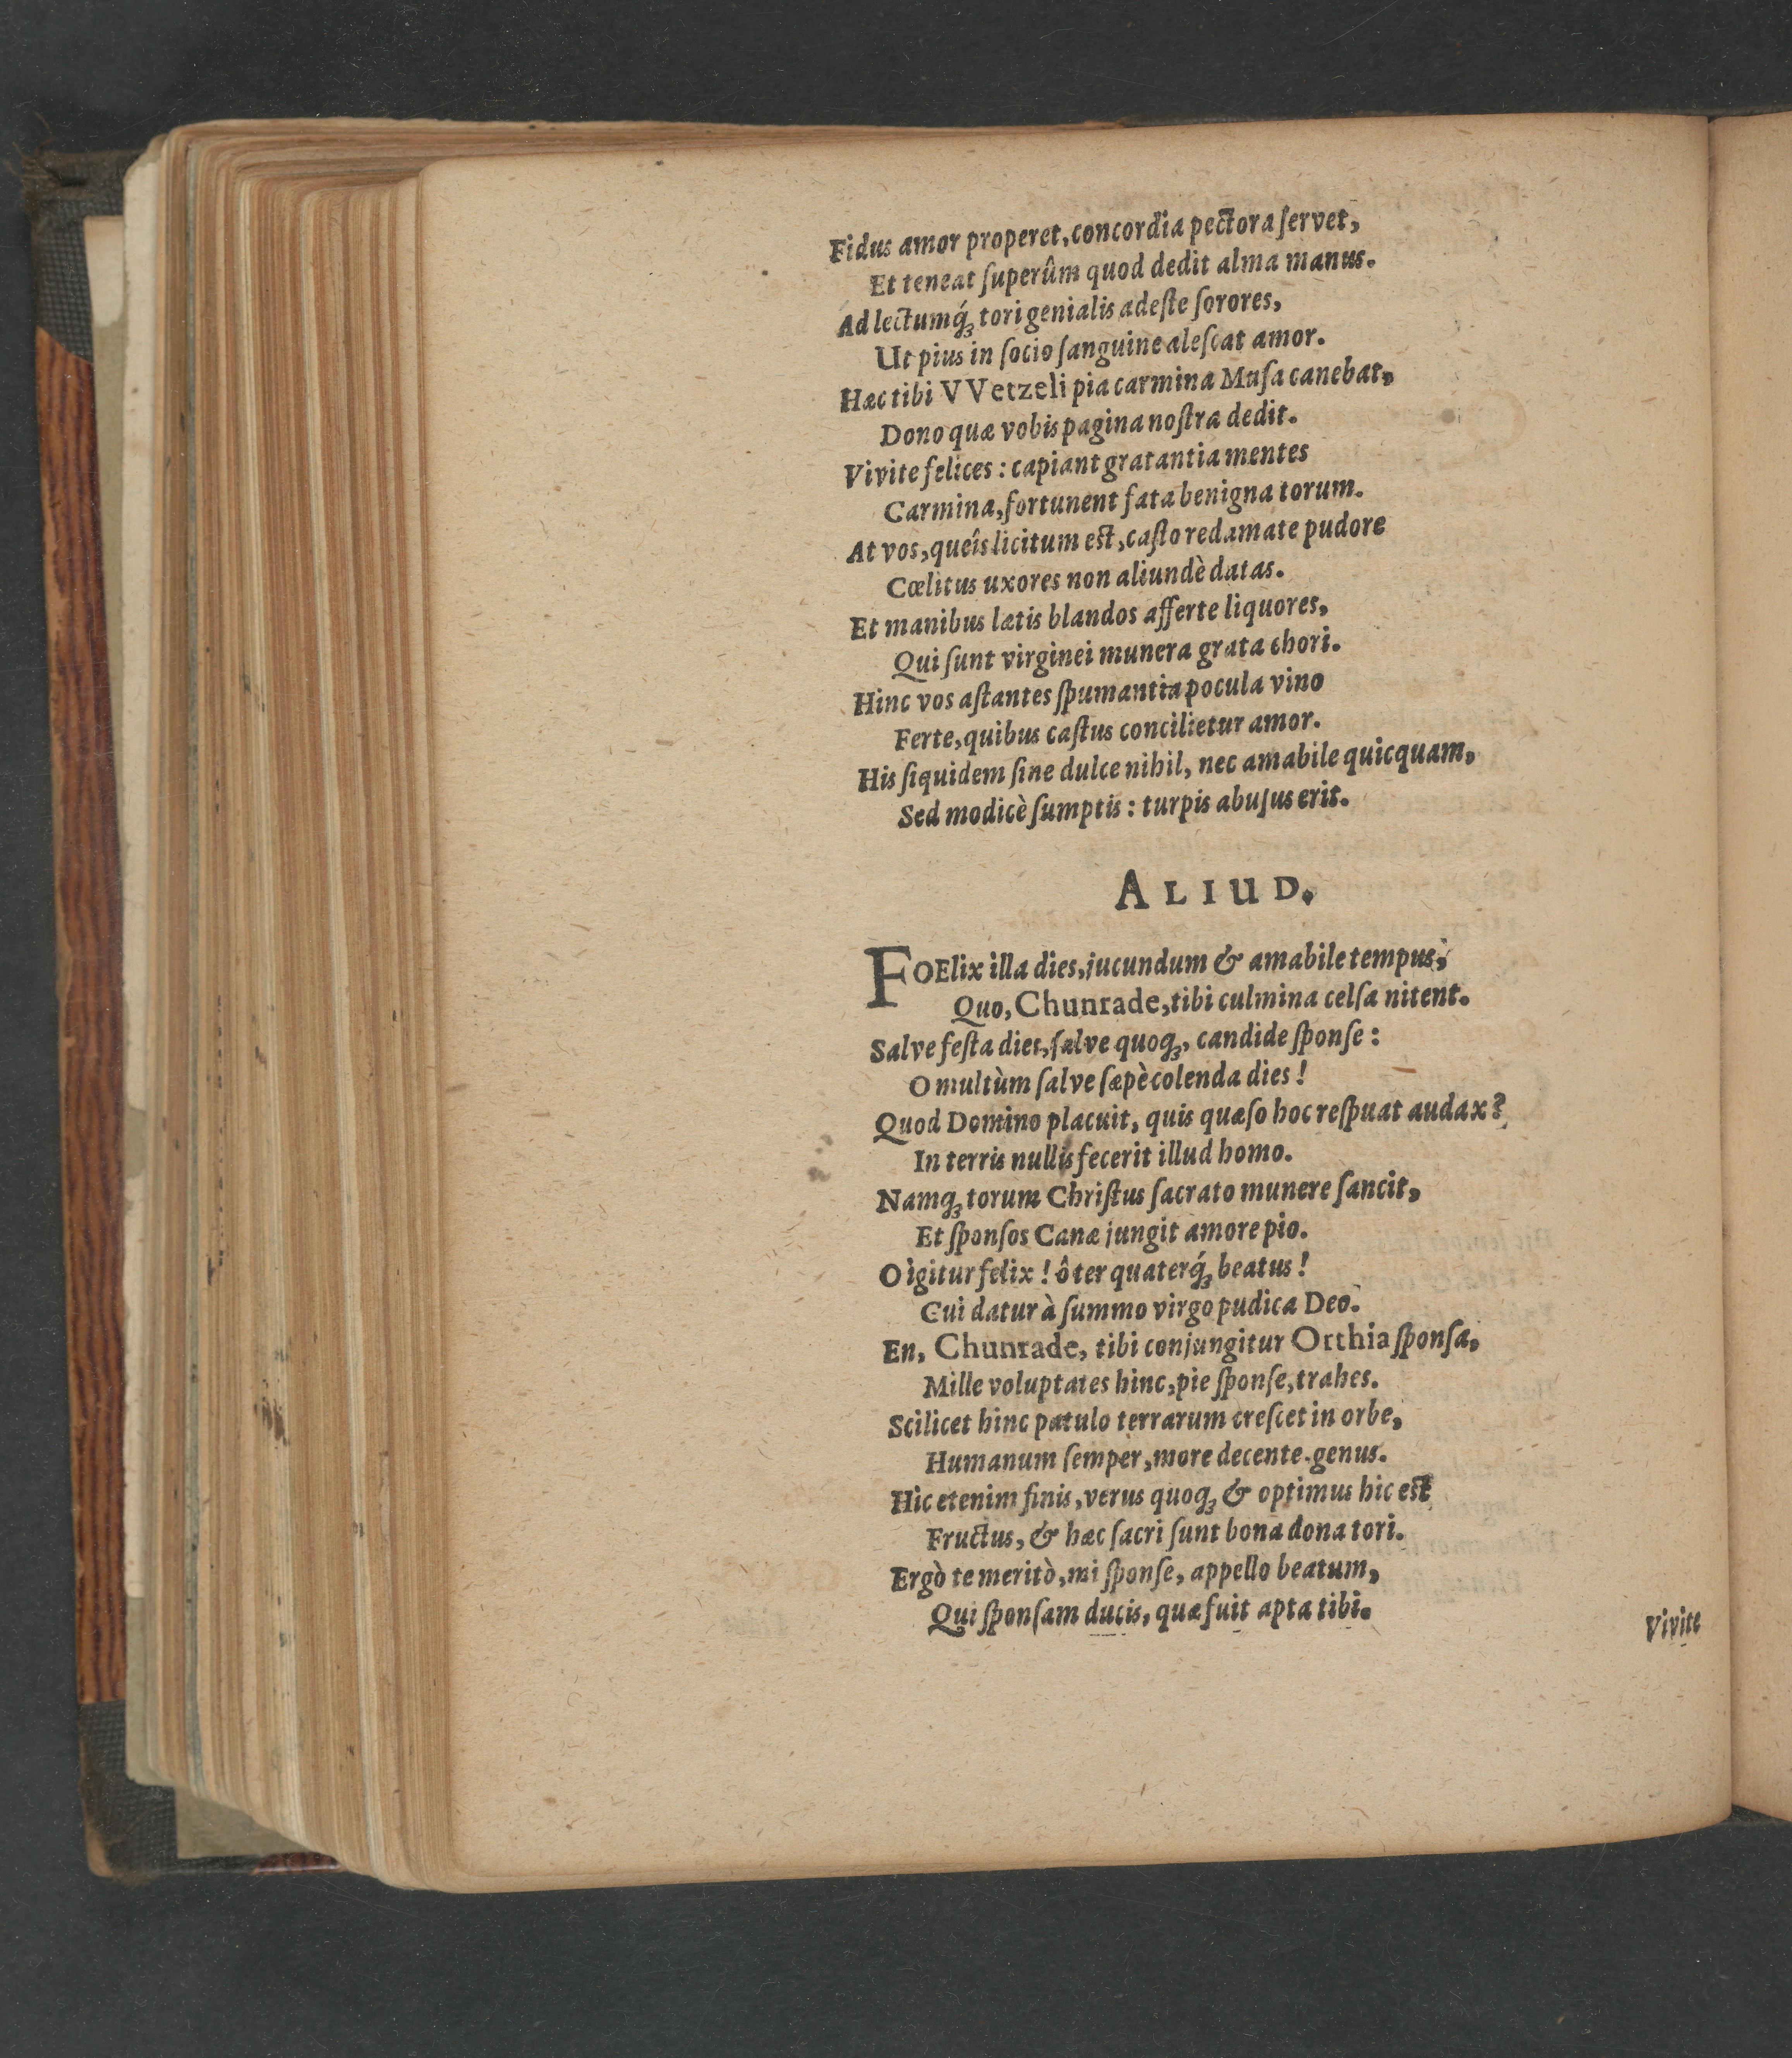 Fidus amor properet, concordia pectora ſervet,
Et teneat ſuperûm quod dedit alma manus.
Ad lectumq́ꝫ tori genialis adeſte ſorores,
Ut pius in ſocio ſanguine aleſcat amor.
Hæc tibi VVetzeli pia carmina Muſa canebat,
Dono quæ vobis pagina noſtra dedit.
Vivite felices: capiant gratantia mentes
Carmina, fortunent fata benigna torum.
At vos, queîs licitum est, caſto redamate pudore
Cœlitus uxores non aliundè datas.
Et manibus lætis blandos afferte liquores,
Qui ſunt virginei munera grata chori.
Hinc vos aſtantes ſpumantia pocula vino
Ferte, quibus caſtus concilietur amor.
His ſiquidem ſine dulce nihil, nec amabile quicquam,
Sed modicè ſumptis: turpis abuſus erit.
ALIUD.
FOElix illa dies, jucundum & amabile tempus,
Quo, Chunrade, tibi culmina celſa nitent.
Salve feſta dies, ſalve quoqꝫ, candide ſponſe:
O multùm ſalve ſæpè colenda dies!
Quod Domino placuit, quis quæſo hoc reſpuat audax?
In terris nullis fecerit illud homo.
Namqꝫ torum Chriſtus ſacrato munere ſancit,
Et ſponſos Canæ jungit amore pio.
O igitur felix! ô ter quaterq́ꝫ beatus!
Cui datur à ſummo virgo pudica Deo.
En, Chunrade, tibi conjungitur Orthia ſponſa,
Mille voluptates hinc, pie ſponſe, trahes.
Scilicet hinc patulo terrarum creſcet in orbe,
Humanum ſemper, more decente genus.
Hic etenim finis, verus quoqꝫ & optimus hic est
Fructus, & hæc ſacri ſunt bona dona tori.
Ergò te meritò, mi ſponſe, appello beatum,
Qui ſponſam ducis, quæ fuit apta tibi.
Vivite